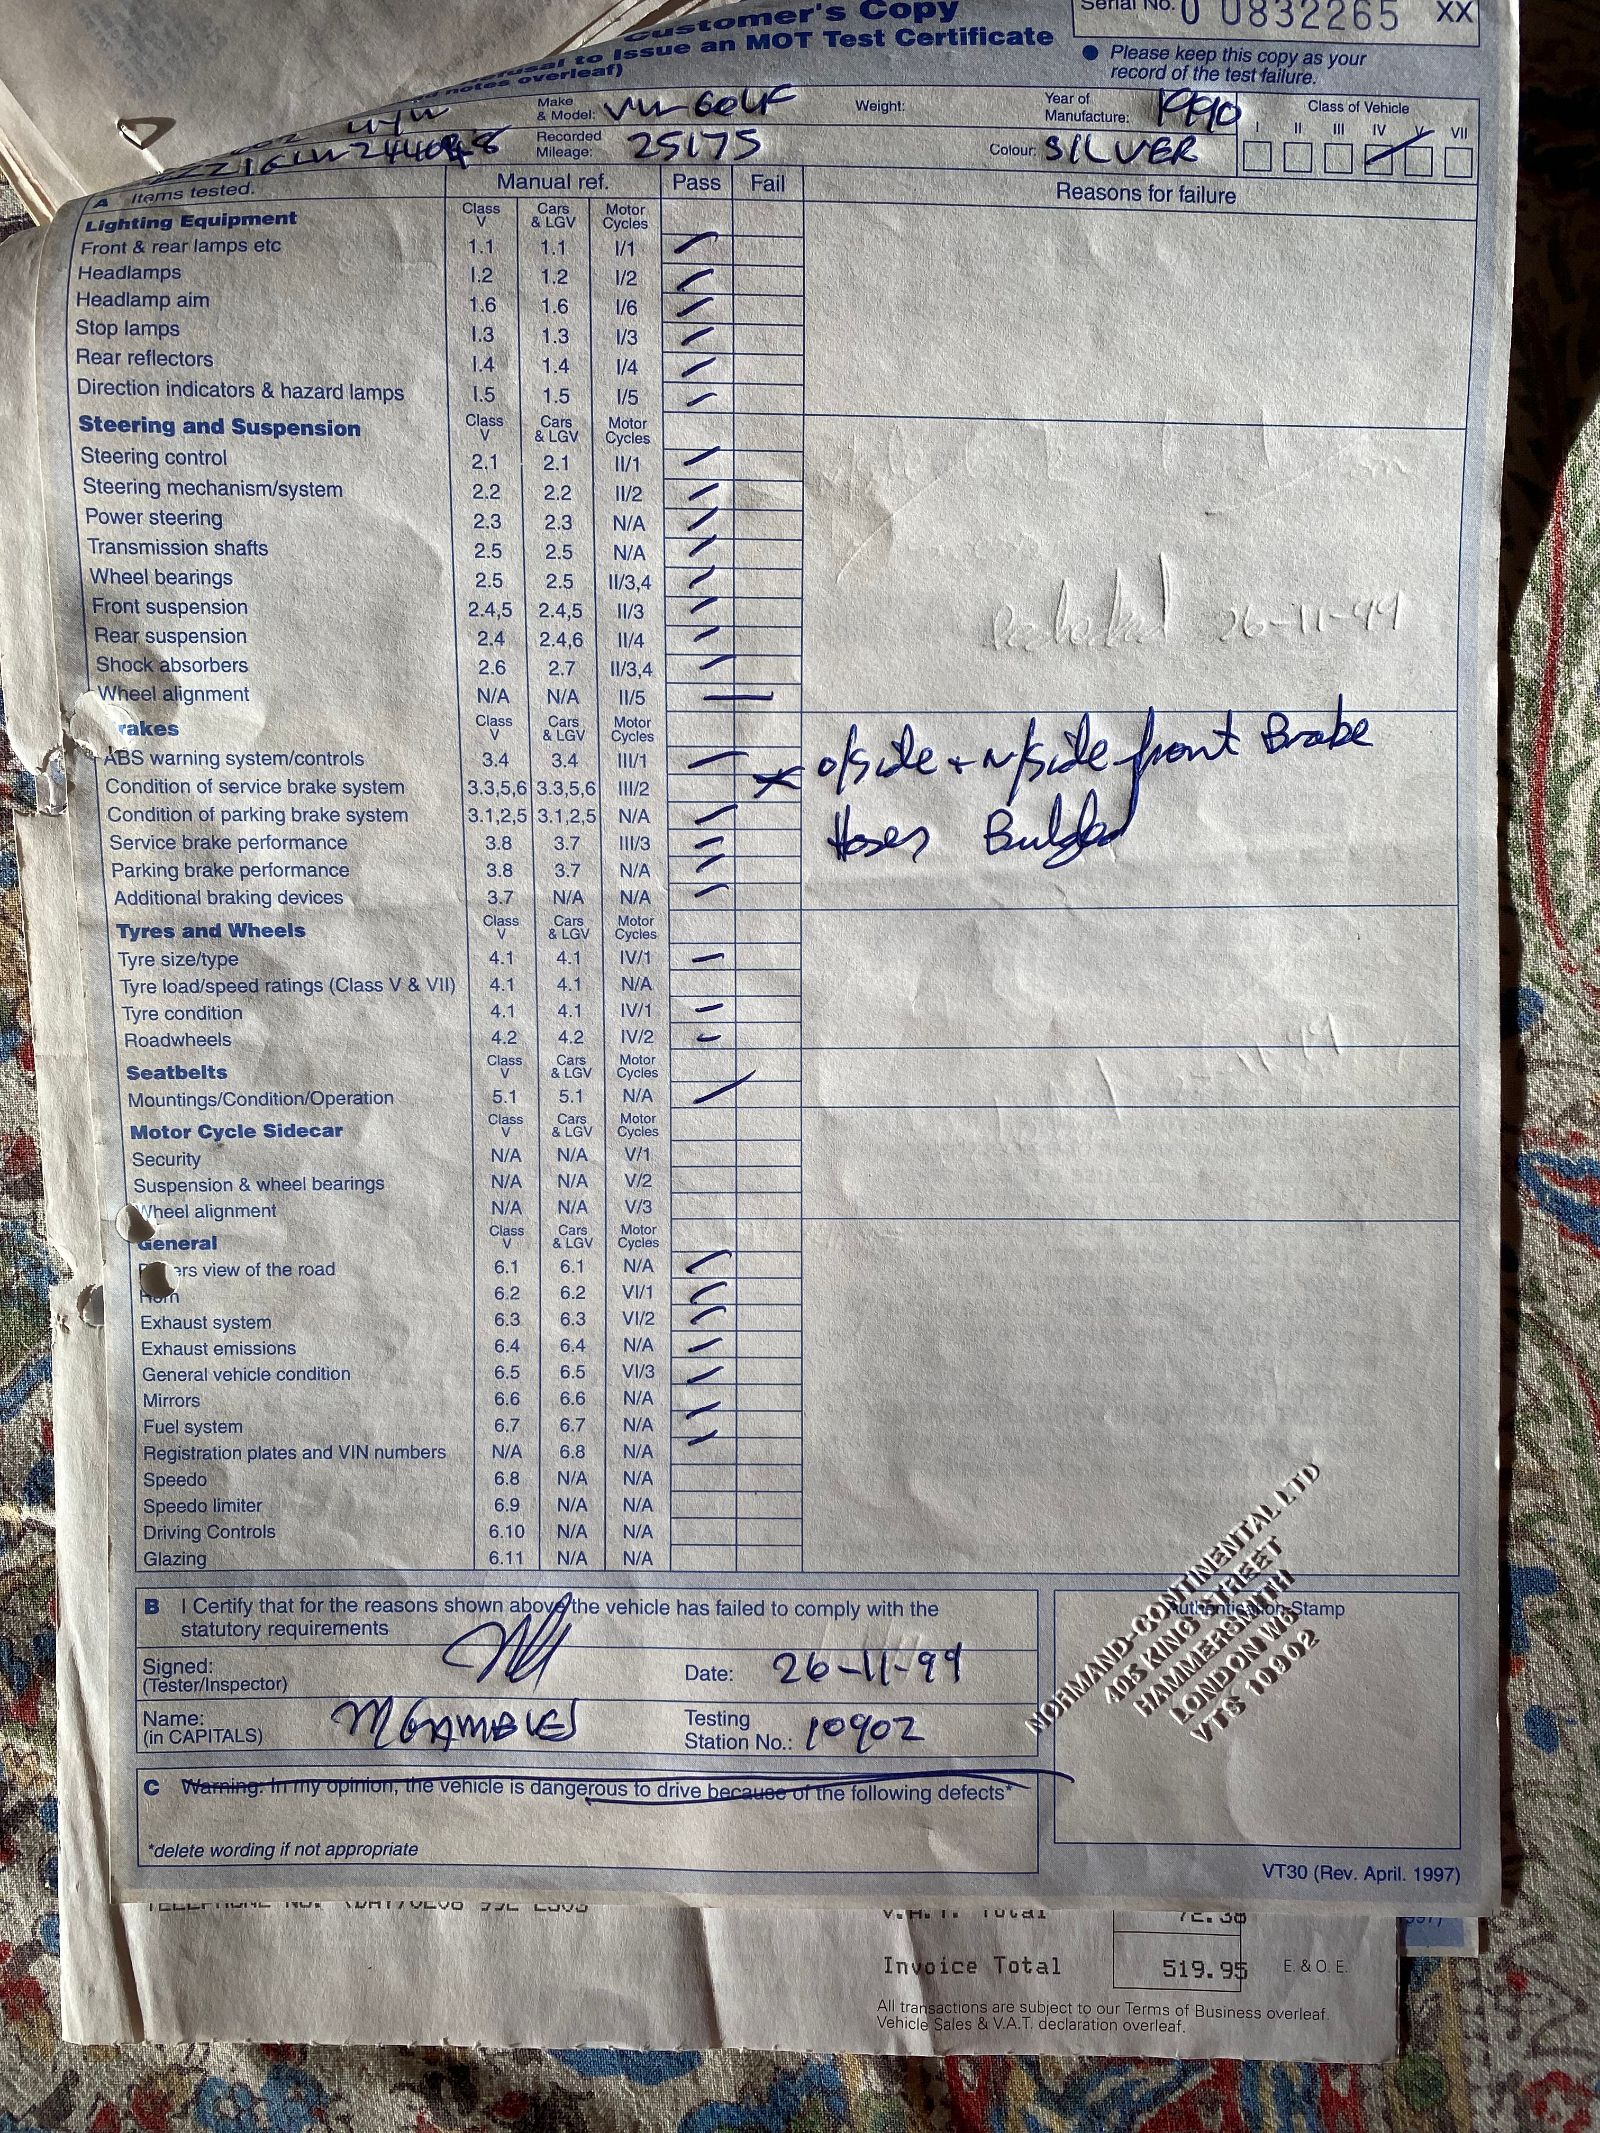 Customer's Copy
Refusal to Issue an MOT Test Certificate
notes overleaf)
Serial No. 0 0832265 XX
● Please keep this copy as your
record of the test failure.
Make & Model: VW GOLF Weight: Year of Manufacture: 1990 Class of Vehicle
Recorded Mileage: 25175 Colour: SILVER I II III IV V VII
A Items tested. Manual ref. Pass Fail Reasons for failure
Lighting Equipment Class V Cars & LGV Motor Cycles
Front & rear lamps etc 1.1 1.1 I/1
Headlamps I.2 1.2 I/2
Headlamp aim 1.6 1.6 I/6
Stop lamps I.3 1.3 I/3
Rear reflectors I.4 1.4 I/4
Direction indicators & hazard lamps I.5 1.5 I/5
Steering and Suspension Class V Cars & LGV Motor Cycles
Steering control 2.1 2.1 II/1
Steering mechanism/system 2.2 2.2 II/2
Power steering 2.3 2.3 N/A
Transmission shafts 2.5 2.5 N/A
Wheel bearings 2.5 2.5 II/3,4
Front suspension 2.4,5 2.4,5 II/3
26-11-99
Rear suspension 2.4 2.4,6 II/4
Shock absorbers 2.6 2.7 II/3,4
Wheel alignment N/A N/A II/5
rakes Class V Cars & LGV Motor Cycles
ABS warning system/controls 3.4 3.4 III/1
o/side + n/side front Brake
Condition of service brake system 3.3,5,6 3.3,5,6 III/2
Condition of parking brake system 3.1,2,5 3.1,2,5 N/A
Hoses Bulged
Service brake performance 3.8 3.7 III/3
Parking brake performance 3.8 3.7 N/A
Additional braking devices 3.7 N/A N/A
Tyres and Wheels Class V Cars & LGV Motor Cycles
Tyre size/type 4.1 4.1 IV/1
Tyre load/speed ratings (Class V & VII) 4.1 4.1 N/A
Tyre condition 4.1 4.1 IV/1
Roadwheels 4.2 4.2 IV/2
Seatbelts Class V Cars & LGV Motor Cycles
Mountings/Condition/Operation 5.1 5.1 N/A
Motor Cycle Sidecar Class V Cars & LGV Motor Cycles
Security N/A N/A V/1
Suspension & wheel bearings N/A N/A V/2
Wheel alignment N/A N/A V/3
General Class V Cars & LGV Motor Cycles
ers view of the road 6.1 6.1 N/A
Horn 6.2 6.2 VI/1
Exhaust system 6.3 6.3 VI/2
Exhaust emissions 6.4 6.4 N/A
General vehicle condition 6.5 6.5 VI/3
Mirrors 6.6 6.6 N/A
Fuel system 6.7 6.7 N/A
Registration plates and VIN numbers N/A 6.8 N/A
Speedo 6.8 N/A N/A
Speedo limiter 6.9 N/A N/A
Driving Controls 6.10 N/A N/A
Glazing 6.11 N/A N/A
B I Certify that for the reasons shown above the vehicle has failed to comply with the
statutory requirements
Signed:
(Tester/Inspector)
Date: 26-11-99
Name:
(in CAPITALS)
M GAMBLES
Testing
Station No.: 10902
Authentication Stamp
NORMAND-CONTINENTAL LTD
405 KING STREET
HAMMERSMITH
LONDON W6
VTS 10902
C Warning: In my opinion, the vehicle is dangerous to drive because of the following defects*
*delete wording if not appropriate
VT30 (Rev. April. 1997)
V.A.T. Total 72.38
Invoice Total 519.95 E. & O. E.
All transactions are subject to our Terms of Business overleaf.
Vehicle Sales & V.A.T. declaration overleaf.